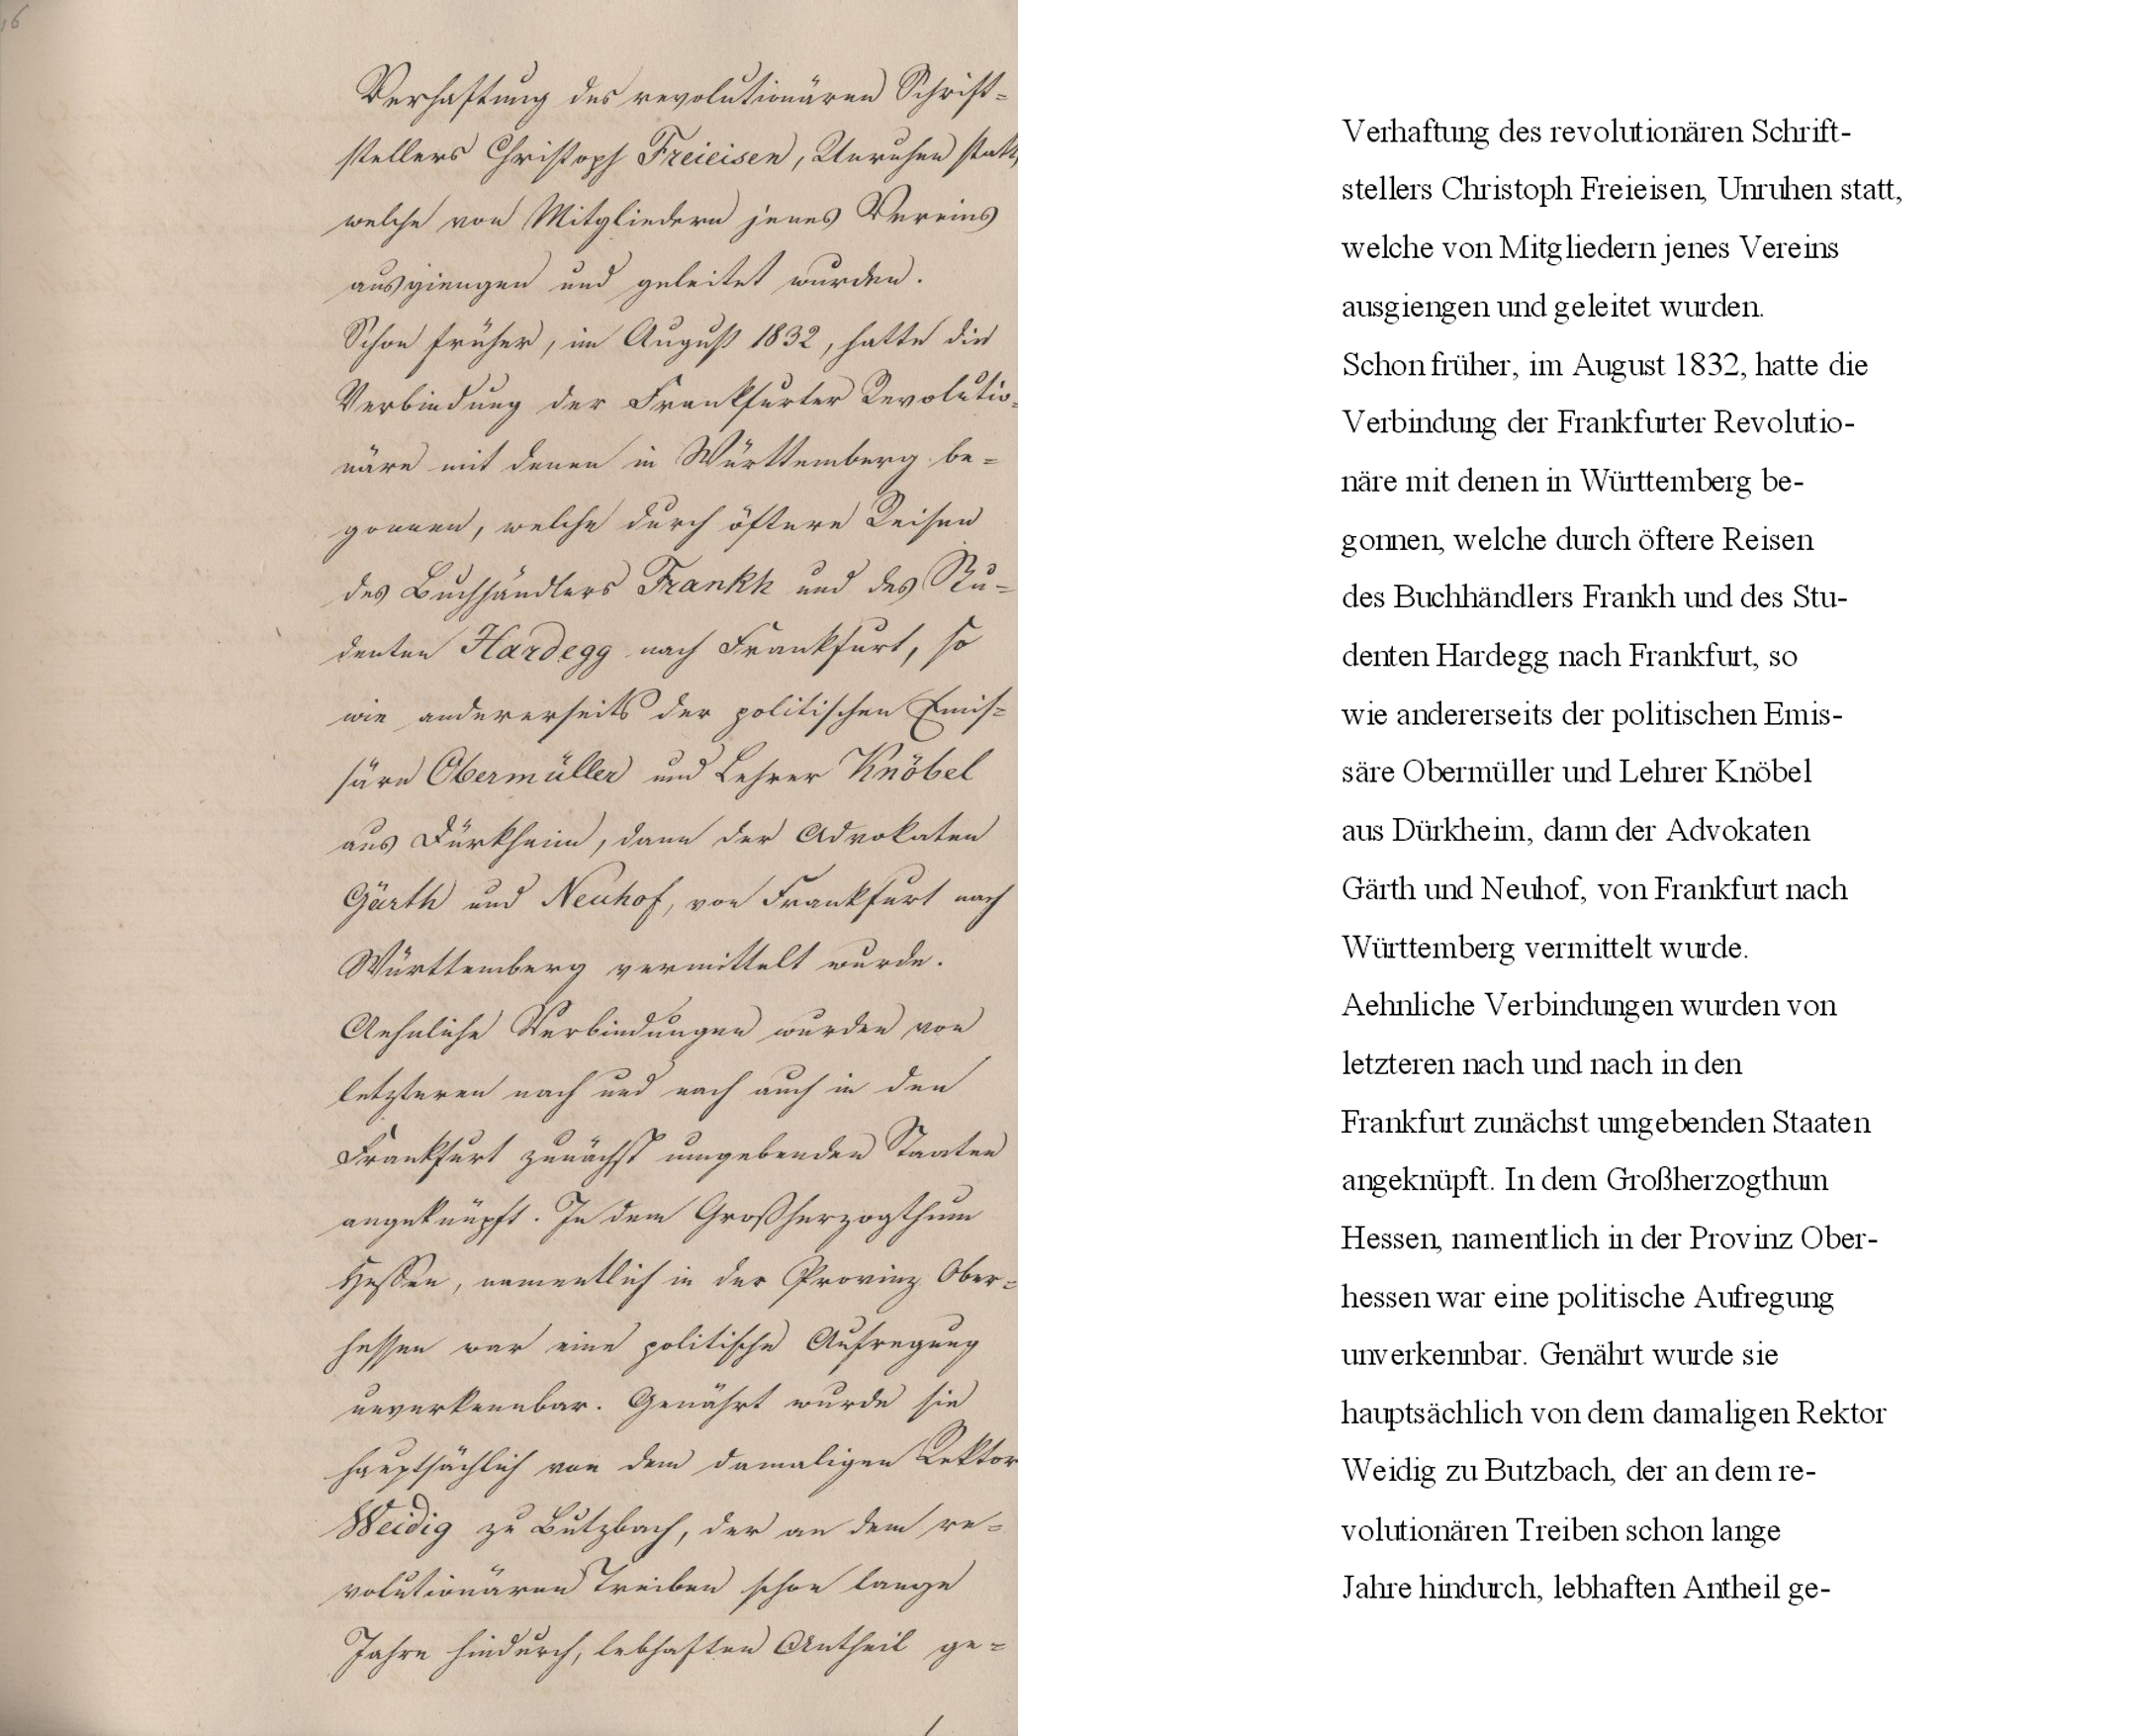 16
Verhaftung des revolutionären Schrift-
stellers Christoph Freieisen, Unruhen statt,
welche von Mitgliedern jenes Vereins
ausgiengen und geleitet wurden.
Schon früher, im August 1832, hatte die
Verbindung der Frankfurter Revolutio-
näre mit denen in Württemberg be-
gonnen, welche durch öftere Reisen
des Buchhändlers Frankh und des Stu-
denten Hardegg nach Frankfurt, so
wie andererseits der politischen Emis-
säre Obermüller und Lehrer Knöbel
aus Dürkheim, dann der Advokaten
Gärth und Neuhof, von Frankfurt nach
Württemberg vermittelt wurde.
Aehnliche Verbindungen wurden von
letzteren nach und nach auch in den
Frankfurt zunächst umgebenden Staaten
angeknüpft. In dem Großherzogthum
Hessen, namentlich in der Provinz Ober-
hessen war eine politische Aufregung
unverkennbar. Genährt wurde sie
hauptsächlich von dem damaligen Rektor
Weidig zu Butzbach, der an dem re-
volutionären Treiben schon lange
Jahre hindurch, lebhaften Antheil ge-
Verhaftung des revolutionären Schrift-
stellers Christoph Freieisen, Unruhen statt,
welche von Mitgliedern jenes Vereins
ausgiengen und geleitet wurden.
Schon früher, im August 1832, hatte die
Verbindung der Frankfurter Revolutio-
näre mit denen in Württemberg be-
gonnen, welche durch öftere Reisen
des Buchhändlers Frankh und des Stu-
denten Hardegg nach Frankfurt, so
wie andererseits der politischen Emis-
säre Obermüller und Lehrer Knöbel
aus Dürkheim, dann der Advokaten
Gärth und Neuhof, von Frankfurt nach
Württemberg vermittelt wurde.
Aehnliche Verbindungen wurden von
letzteren nach und nach in den
Frankfurt zunächst umgebenden Staaten
angeknüpft. In dem Großherzogthum
Hessen, namentlich in der Provinz Ober-
hessen war eine politische Aufregung
unverkennbar. Genährt wurde sie
hauptsächlich von dem damaligen Rektor
Weidig zu Butzbach, der an dem re-
volutionären Treiben schon lange
Jahre hindurch, lebhaften Antheil ge-